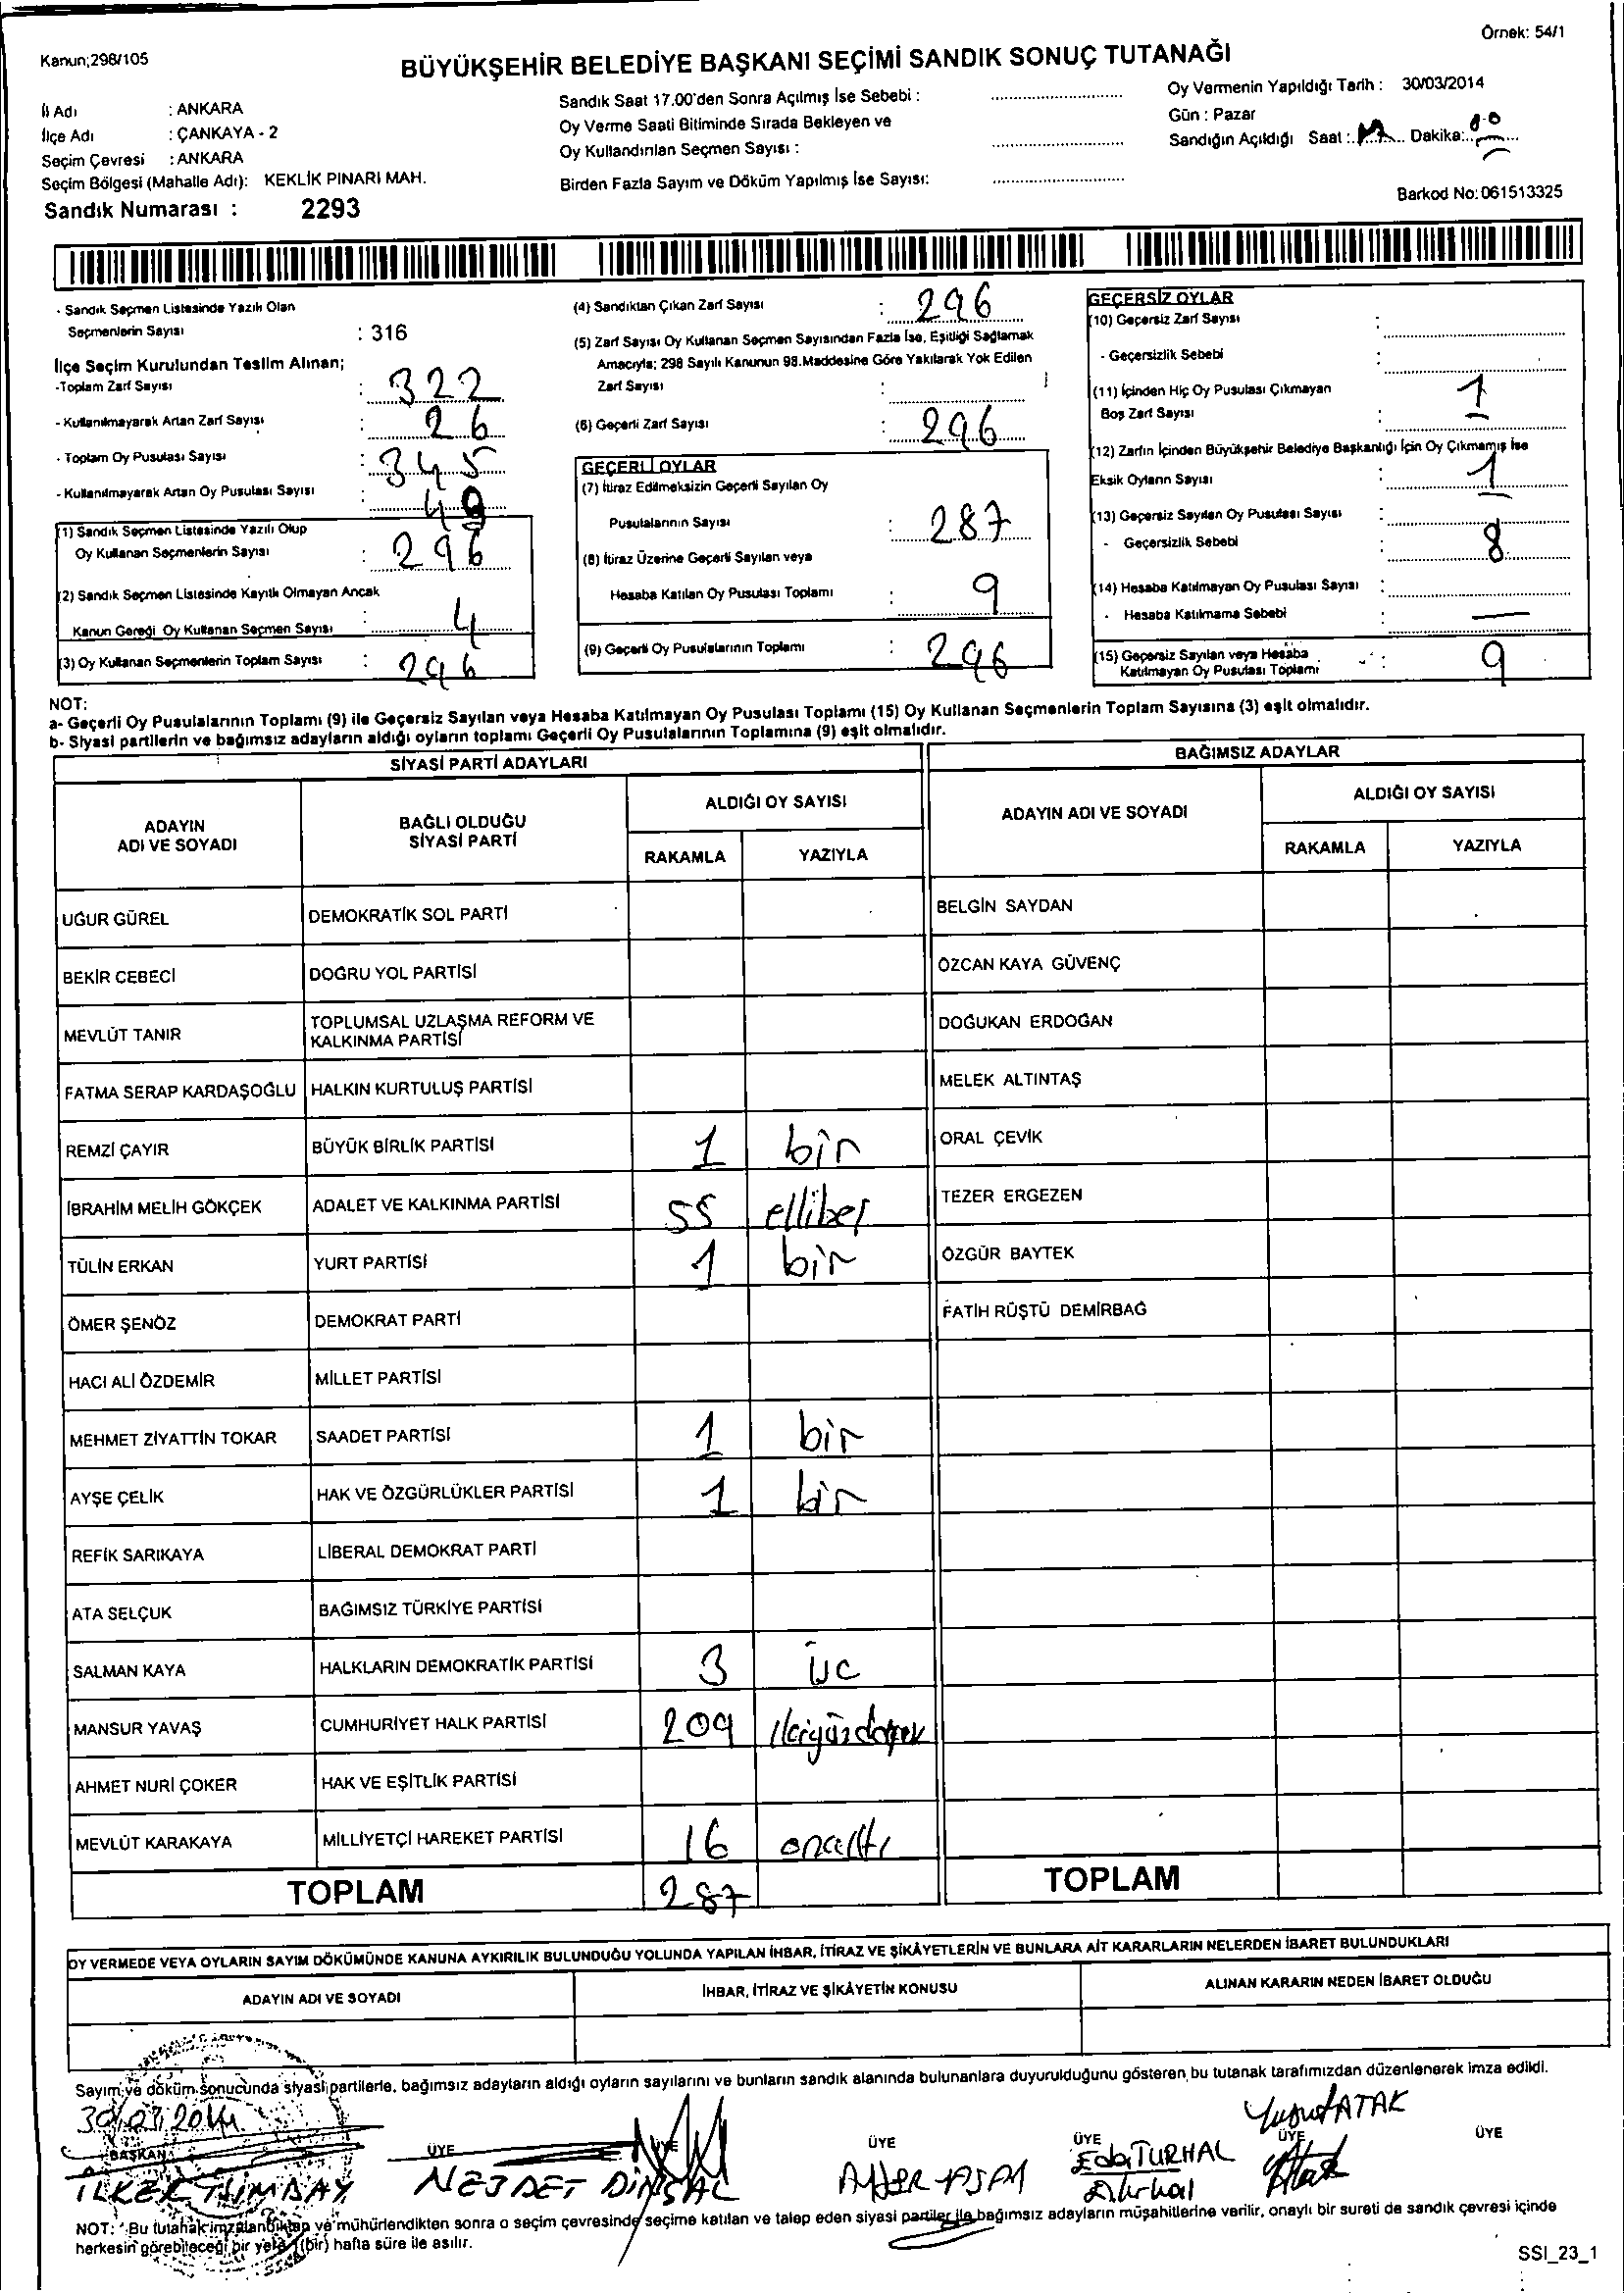 Örnek: 54/1
Kanun;298/105
BÜYÜKŞEHİR BELEDİYE BAŞKANI SEÇİMİ SANDIK SONUÇ TUTANAĞI
İl Adı : ANKARA
İlçe Adı : ÇANKAYA - 2
Seçim Çevresi : ANKARA
Seçim Bölgesi (Mahalle Adı): KEKLİK PINARI MAH.
Sandık Numarası : 2293
Sandık Saat 17.00'den Sonra Açılmış İse Sebebi :
Oy Verme Saati Bitiminde Sırada Bekleyen ve
Oy Kullandırılan Seçmen Sayısı :
Birden Fazla Sayım ve Döküm Yapılmış İse Sayısı:
Oy Vermenin Yapıldığı Tarih : 30/03/2014
Gün : Pazar
Sandığın Açıldığı Saat : 17 Dakika:
Barkod No:061513325
- Sandık Seçmen Listesinde Yazılı Olan
Seçmenlerin Sayısı : 316
İlçe Seçim Kurulundan Teslim Alınan;
-Toplam Zarf Sayısı : 322
- Kullanılmayarak Artan Zarf Sayısı : 26
- Toplam Oy Pusulası Sayısı : 345
- Kullanılmayarak Artan Oy Pusulası Sayısı
(1) Sandık Seçmen Listesinde Yazılı Olup
Oy Kullanan Seçmenlerin Sayısı : 296
(2) Sandık Seçmen Listesinde Kayıtlı Olmayan Ancak
Kanun Gereği Oy Kullanan Seçmen Sayısı : 4
(3) Oy Kullanan Seçmenlerin Toplam Sayısı : 296
(4) Sandıktan Çıkan Zarf Sayısı : 296
(5) Zarf Sayısı Oy Kullanan Seçmen Sayısından Fazla İse, Eşitliği Sağlamak
Amacıyla; 298 Sayılı Kanunun 98.Maddesine Göre Yakılarak Yok Edilen
Zarf Sayısı :
(6) Geçerli Zarf Sayısı : 296
GEÇERLİ OYLAR
(7) İtiraz Edilmeksizin Geçerli Sayılan Oy
Pusulalarının Sayısı : 287
(8) İtiraz Üzerine Geçerli Sayılan veya
Hesaba Katılan Oy Pusulası Toplamı : 9
(9) Geçerli Oy Pusulalarının Toplamı : 296
GEÇERSİZ OYLAR
(10) Geçersiz Zarf Sayısı :
- Geçersizlik Sebebi :
(11) İçinden Hiç Oy Pusulası Çıkmayan
Boş Zarf Sayısı : 1
(12) Zarfın İçinden Büyükşehir Belediye Başkanlığı İçin Oy Çıkmamış İse
Eksik Oyların Sayısı : 1
(13) Geçersiz Sayılan Oy Pusulası Sayısı :
- Geçersizlik Sebebi : 8
(14) Hesaba Katılmayan Oy Pusulası Sayısı :
- Hesaba Katılmama Sebebi : —
(15) Geçersiz Sayılan veya Hesaba
Katılmayan Oy Pusulası Toplamı : 9
NOT:
a- Geçerli Oy Pusulalarının Toplamı (9) ile Geçersiz Sayılan veya Hesaba Katılmayan Oy Pusulası Toplamı (15) Oy Kullanan Seçmenlerin Toplam Sayısına (3) eşit olmalıdır.
b- Siyasi partilerin ve bağımsız adayların aldığı oyların toplamı Geçerli Oy Pusulalarının Toplamına (9) eşit olmalıdır.
SİYASİ PARTİ ADAYLARI
ADAYIN ADI VE SOYADI BAĞLI OLDUĞU SİYASİ PARTİ ALDIĞI OY SAYISI
RAKAMLA YAZIYLA
UĞUR GÜREL DEMOKRATİK SOL PARTİ
BEKİR CEBECİ DOĞRU YOL PARTİSİ
MEVLÜT TANIR TOPLUMSAL UZLAŞMA REFORM VE KALKINMA PARTİSİ
FATMA SERAP KARDAŞOĞLU HALKIN KURTULUŞ PARTİSİ
REMZİ ÇAYIR BÜYÜK BİRLİK PARTİSİ 1 bir
İBRAHİM MELİH GÖKÇEK ADALET VE KALKINMA PARTİSİ 55 ellibeş
TÜLİN ERKAN YURT PARTİSİ 1 bir
ÖMER ŞENÖZ DEMOKRAT PARTİ
HACI ALİ ÖZDEMİR MİLLET PARTİSİ
MEHMET ZİYATTİN TOKAR SAADET PARTİSİ 1 bir
AYŞE ÇELİK HAK VE ÖZGÜRLÜKLER PARTİSİ 1 bir
REFİK SARIKAYA LİBERAL DEMOKRAT PARTİ
ATA SELÇUK BAĞIMSIZ TÜRKİYE PARTİSİ
SALMAN KAYA HALKLARIN DEMOKRATİK PARTİSİ 3 üc
MANSUR YAVAŞ CUMHURİYET HALK PARTİSİ 209 ikiyüzdokuz
AHMET NURİ ÇOKER HAK VE EŞİTLİK PARTİSİ
MEVLÜT KARAKAYA MİLLİYETÇİ HAREKET PARTİSİ 16 onaltı
TOPLAM 287
BAĞIMSIZ ADAYLAR
ADAYIN ADI VE SOYADI ALDIĞI OY SAYISI
RAKAMLA YAZIYLA
BELGİN SAYDAN
ÖZCAN KAYA GÜVENÇ
DOĞUKAN ERDOĞAN
MELEK ALTINTAŞ
ORAL ÇEVİK
TEZER ERGEZEN
ÖZGÜR BAYTEK
FATİH RÜŞTÜ DEMİRBAĞ
TOPLAM
OY VERMEDE VEYA OYLARIN SAYIM DÖKÜMÜNDE KANUNA AYKIRILIK BULUNDUĞU YOLUNDA YAPILAN İHBAR, İTİRAZ VE ŞİKÂYETLERİN VE BUNLARA AİT KARARLARIN NELERDEN İBARET BULUNDUKLARI
ADAYIN ADI VE SOYADI İHBAR, İTİRAZ VE ŞİKÂYETİN KONUSU ALINAN KARARIN NEDEN İBARET OLDUĞU
Sayım ve döküm sonucunda siyasi partilerle, bağımsız adayların aldığı oyların sayılarını ve bunların sandık alanında bulunanlara duyurulduğunu gösteren bu tutanak tarafımızdan düzenlenerek imza edildi.
30/03/2014
BAŞKAN ÜYE ÜYE ÜYE ÜYE ÜYE
İLKER NEJDET Eda TURHAL Yusuf ATAK
NOT: Bu tutanak imzalandıktan ve mühürlendikten sonra o seçim çevresinde seçime katılan ve talep eden siyasi partiler ile bağımsız adayların müşahitlerine verilir, onaylı bir sureti de sandık çevresi içinde
herkesin görebileceği bir yere (bir) hafta süre ile asılır.
SSI_23_1